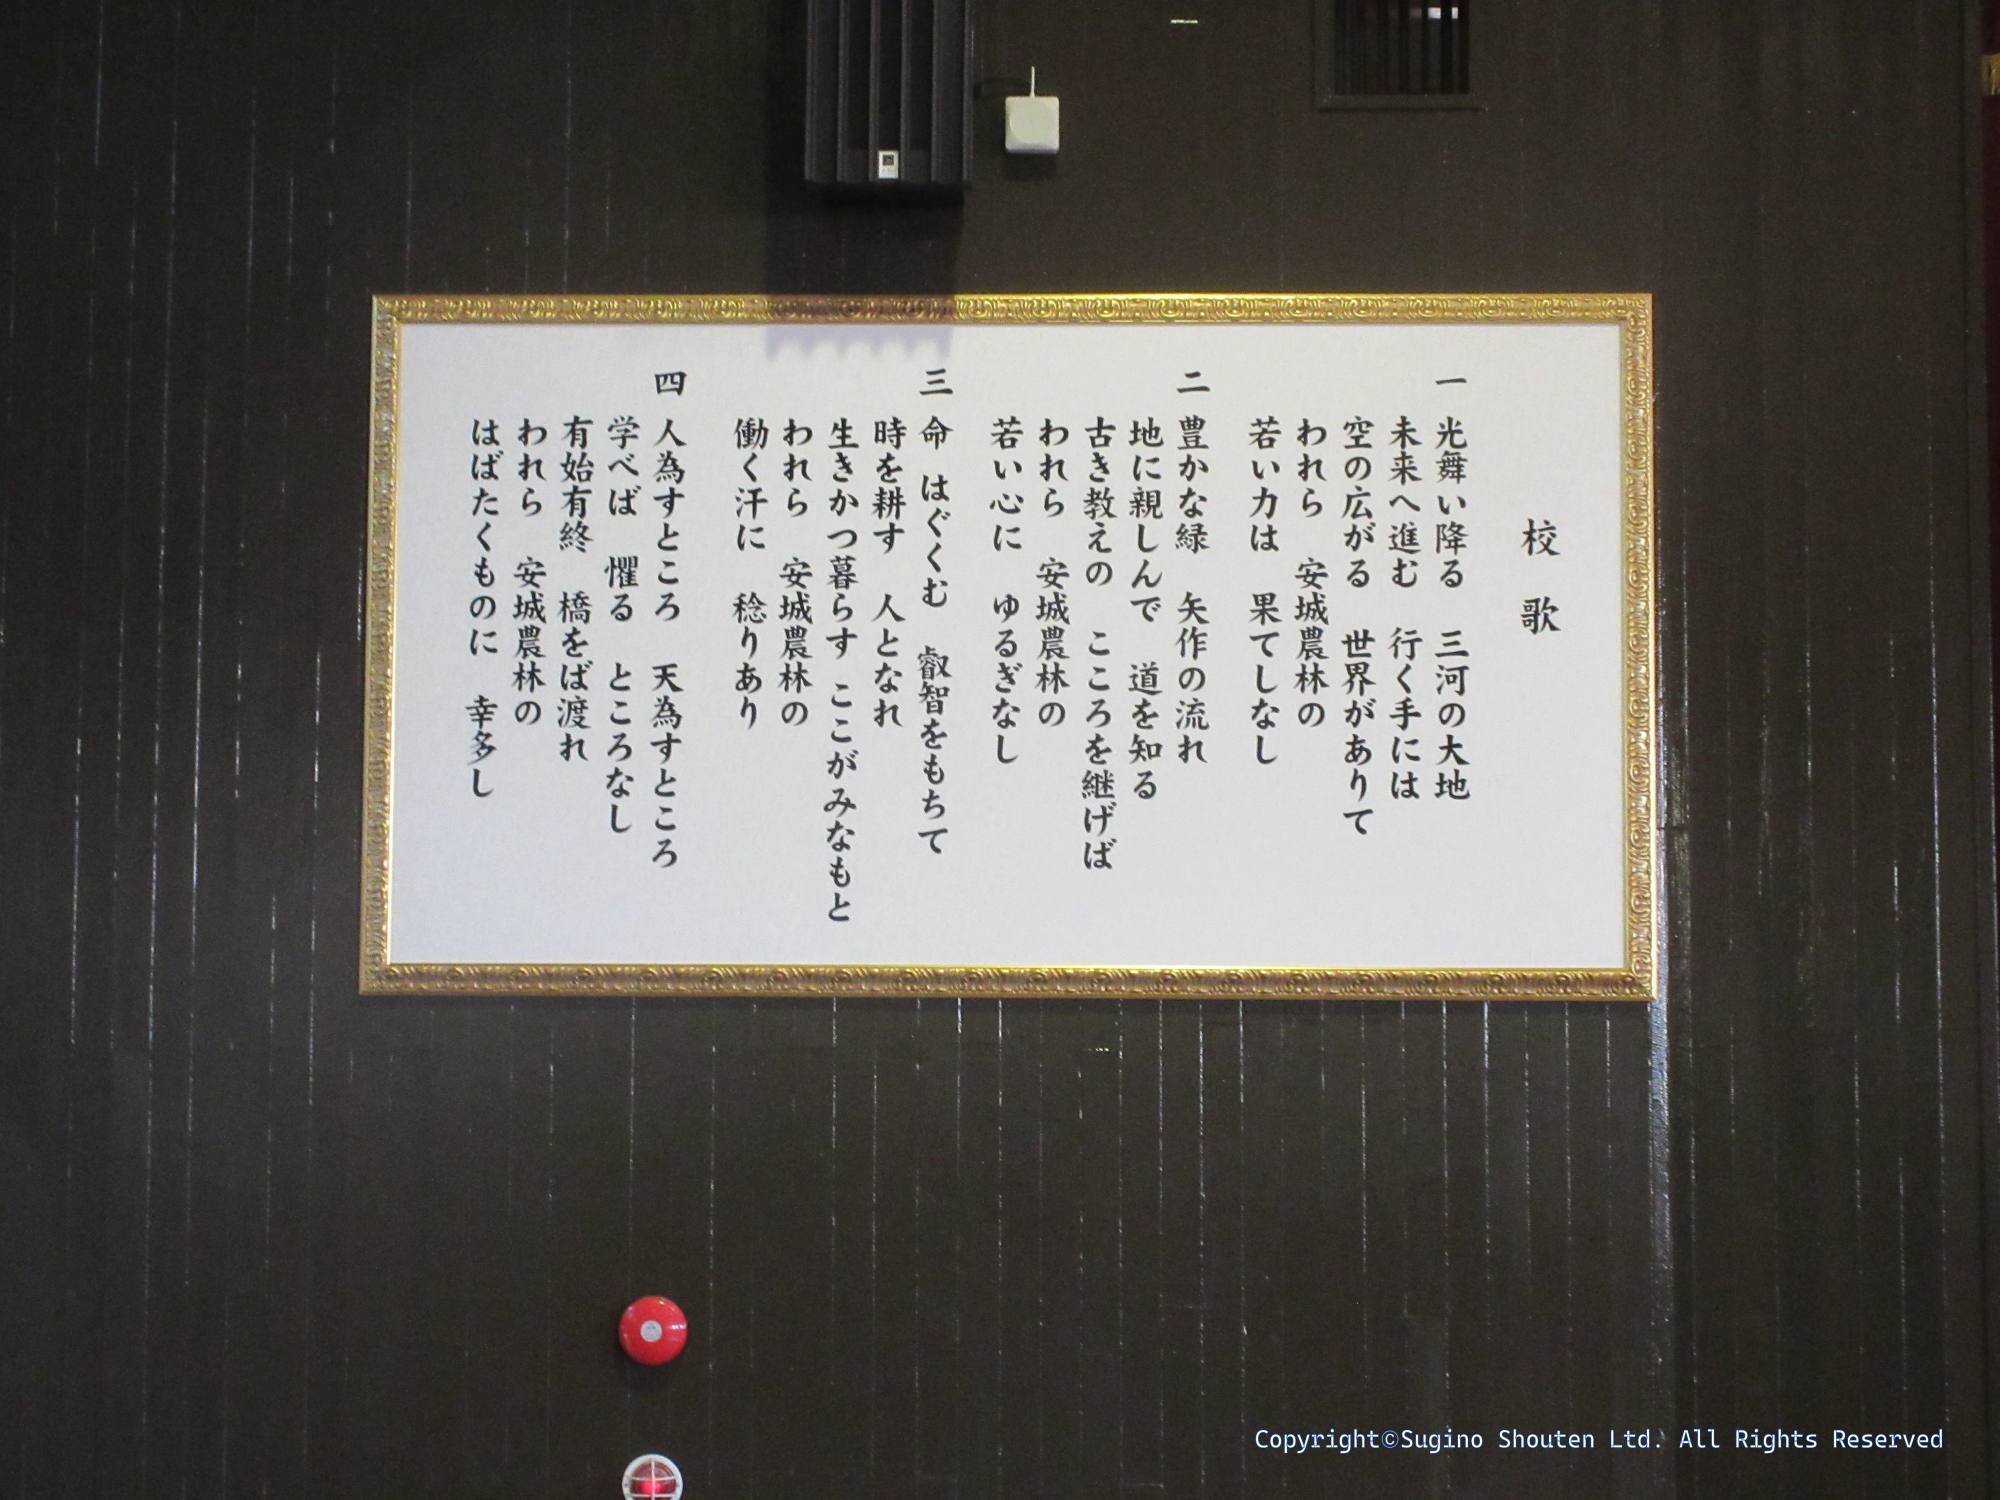 校　歌
一　光舞い降る　三河の大地
未来へ進む　行く手には
空の広がる　世界がありて
われら　安城農林の
若い力は　果てしなし
二　豊かな緑　矢作の流れ
地に親しんで　道を知る
古き教えの　こころを継げば
われら　安城農林の
若い心に　ゆるぎなし
三　命　はぐくむ　叡智をもちて
時を耕す　人となれ
生きかつ暮らす　ここがみなもと
われら　安城農林の
働く汗に　稔りあり
四　人為すところ　天為すところ
学べば　懼る　ところなし
有始有終　橋をば渡れ
われら　安城農林の
はばたくものに　幸多し
Copyright©Sugino Shouten Ltd. All Rights Reserved